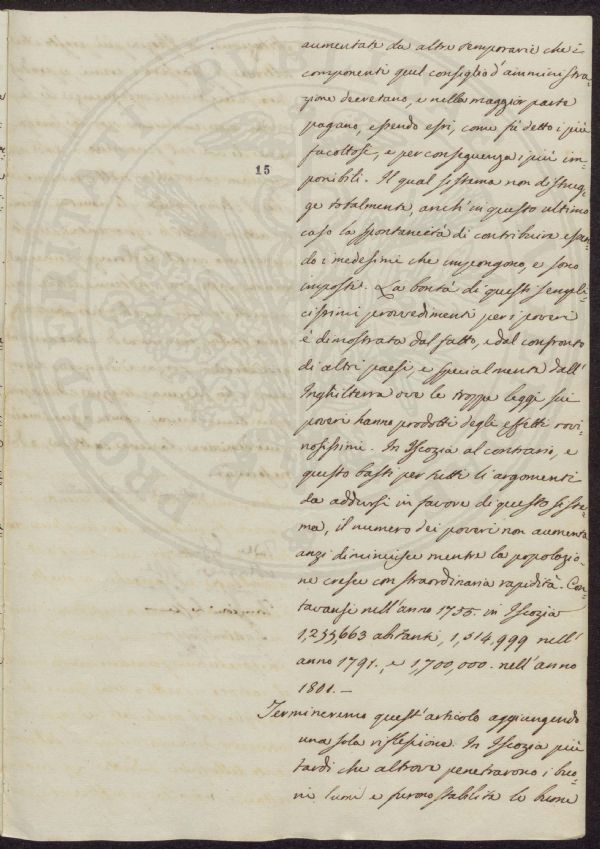 aumentate da altre temporarie che i
componenti quel consiglio d'amministra-
zione decretano, e nella maggior parte
pagano, essendo essi, come fù detto i più
facoltosi, e per conseguenza i più im-
15
ponibili. Il qual sistema non distrug-
ge totalmente, anch' in questo ultimo
caso la spontaneità di contribuire essen-
do i medesimi che impongono, e sono
imposti. La bontà di questi sempli-
cissimi provvedimenti per i poveri
è dimostrata dal fatto, e dal confronto
di altri paesi, e specialmente dall'
Inghilterra ove le troppe leggi sui
poveri hanno prodotti degli effetti rovi-
nosissimi. In Iscozia al contrario, e
questo basti per tutti li argomenti
da addursi in favore di questo siste-
ma, il numero dei poveri non aumenta
anzi diminuisce mentre la popolazio-
ne cresce con straordinaria rapidità. Con-
tavansi nell'anno 1755. in Iscozia
1,255,663 abitanti, 1,514,999 nell'
anno 1791., e 1,700,000. nell'anno
1801.—
Termineremo quest'articolo aggiungendo
una sola riflessione. In Iscozia più
tardi che altrove penetrarono i buo-
ni lumi e furono stabilite le buone